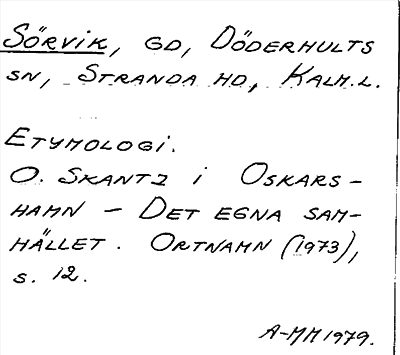 SÖRVIK, GD, DÖDERHULTS
SN, STRANDA HD, KALM.L.
ETYMOLOGI.
O. SKANTZ I OSKARS-
HAMN – DET EGNA SAM-
HÄLLET. ORTNAMN (1973),
S. 12.
A-MM 1979.